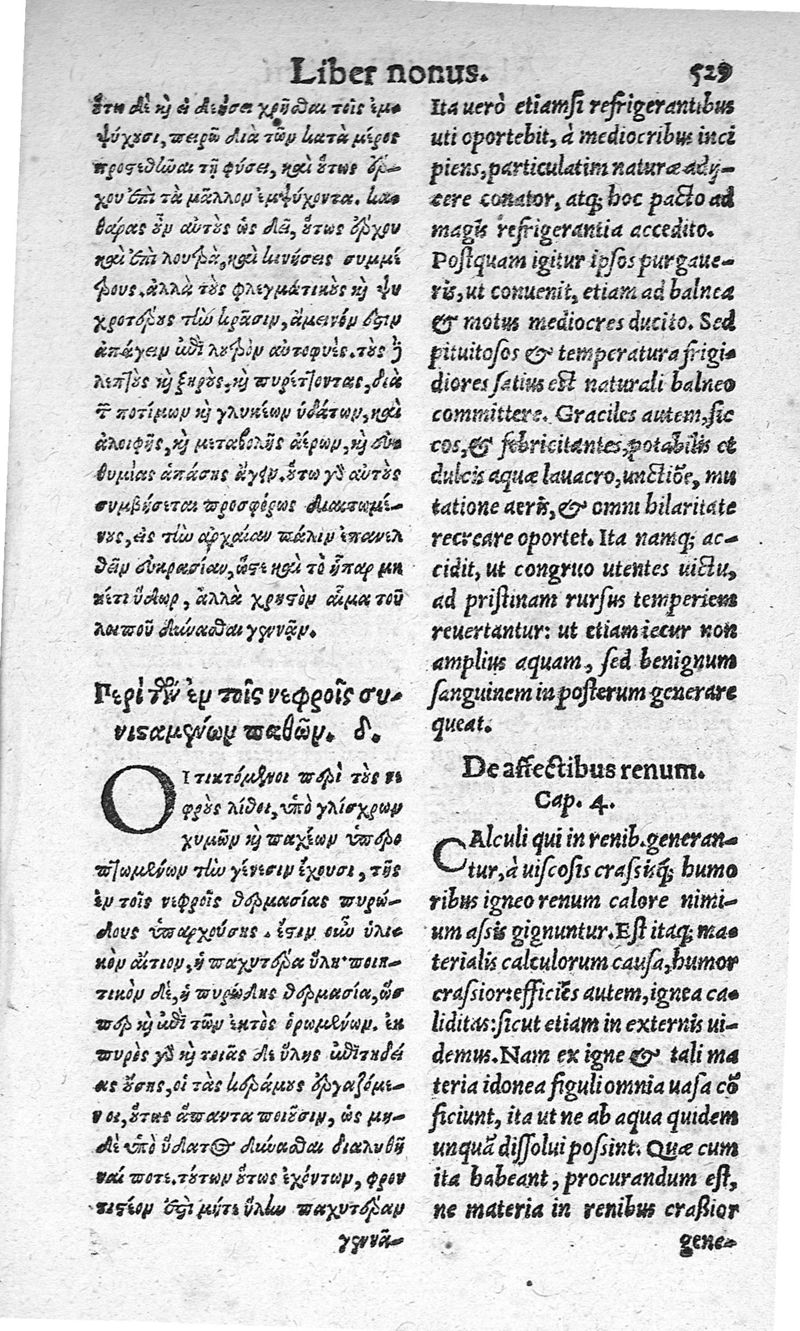 Liber nonus. 529
ὅτη δὲ κỳ εἰ δεήσει χρῆσθαι τοῖς ἐμ-
ψύχουσι, πειρῶ διὰ τῶν κατὰ μέρος
προστεθῶναι τῇ φύσει, καὶ οὕτως ἔρ-
χου ἐπὶ τὰ μᾶλλον ἐμψύχοντα. κα-
θάρας οὖν αὐτοὺς ὡς δεῖ, οὕτως ἔρχου
καὶ ἐπὶ λουτρὰ, καὶ κινήσεις συμμέ
τρους. ἀλλὰ τοὺς φλεγμάτικους καὶ ψυ
χροτέρους τὴν κρᾶσιν, ἄμεινόν ἐστιν
ἀπάγειν ἐπὶ λουτρὸν αὐτοφυές. τοὺς δὲ
λεπτοὺς καὶ ξηροὺς, καὶ πυρέττοντας, διὰ
τῶν ποτίμων καὶ γλυκέων ὑδάτων, καὶ
ἀλοιφῆς, καὶ μεταβολῆς ἀέρων, καὶ εὐ
θυμίας ἁπάσης ἄγειν. οὕτω γὰρ αὐτοὺς
συμβήσεται προσφόρως διαιτωμέ-
νους, εἰς τὴν ἀρχαίαν πάλιν ἐπανελ
θεῖν εὐκρασίαν, ὥστε καὶ τὸ ἧπαρ μη
κέτι ὕδωρ, ἀλλὰ χρηστὸν αἷμα τοῦ
λοιποῦ δύνασθαι γεννᾶν.
Περὶ τῶν ἐν τοῖς νεφροῖς συ-
νισταμένων παθῶν. δ.
ΟΙ τικτόμενοι περὶ τοὺς νε
φροὺς λίθοι, ὑπὸ γλίσχρων
χυμῶν καὶ παχέων ὑπερο
πτωμένων τὴν γένεσιν ἔχουσι, τῆς
ἐν τοῖς νεφροῖς θερμασίας πυρώ-
δους ὑπαρχούσης. ἔστιν οὖν ὑλι-
κὸν αἴτιον, ἡ παχυτέρα ὕλη· ποιη-
τικὸν δὲ, ἡ πυρώδης θερμασία, ὥσ
περ καὶ ἐπὶ τῶν ἐκτὸς ὁρωμένων. ἐκ
πυρὸς γὰρ καὶ τοιᾶς δε ὕλης ἐπιτηδεί
ας οὔσης, οἱ τὰς κεράμους ἐργαζόμε-
νοι, οὕτως ἅπαντα ποιοῦσιν, ὡς μη-
δὲ ὑπὸ ὕδατος δύνασθαι διαλυθῆ
ναί ποτε. τούτων οὕτως ἐχόντων, φρον
τιστέον ἐστὶ μήτε ὕλην παχυτέραν
γεννᾶ-
Ita uerò etiamsi refrigerantibus
uti oportebit, à mediocribus inci
piens, particulatim naturæ adij-
cere conator, atq; hoc pacto ad
magis refrigerantia accedito.
Postquam igitur ipsos purgaue-
ris, ut conuenit, etiam ad balnea
& motus mediocres ducito. Sed
pituitosos & temperatura frigi-
diores satius est naturali balneo
committere. Graciles autem, sic
cos, & febricitantes, potabilis et
dulcis aquæ lauacro, unctiõe, mu
tatione aeris, & omni hilaritate
recreare oportet. Ita namq; ac-
cidit, ut congruo utentes uictu,
ad pristinam rursus temperiem
reuertantur: ut etiam iecur non
amplius aquam, sed benignum
sanguinem in posterum generare
queat.
De affectibus renum.
Cap. 4.
CAlculi qui in renib. generan-
tur, à uiscosis crassisq; humo
ribus igneo renum calore nimi-
um assis gignuntur. Est itaq; ma-
terialis calculorum causa, humor
crassior: efficiẽs autem, ignea ca-
liditas: sicut etiam in externis ui-
demus. Nam ex igne & tali ma
teria idonea figuli omnia uasa cõ
ficiunt, ita ut ne ab aqua quidem
unquã dissolui possint. Quæ cum
ita habeant, procurandum est,
ne materia in renibus crassior
gene-